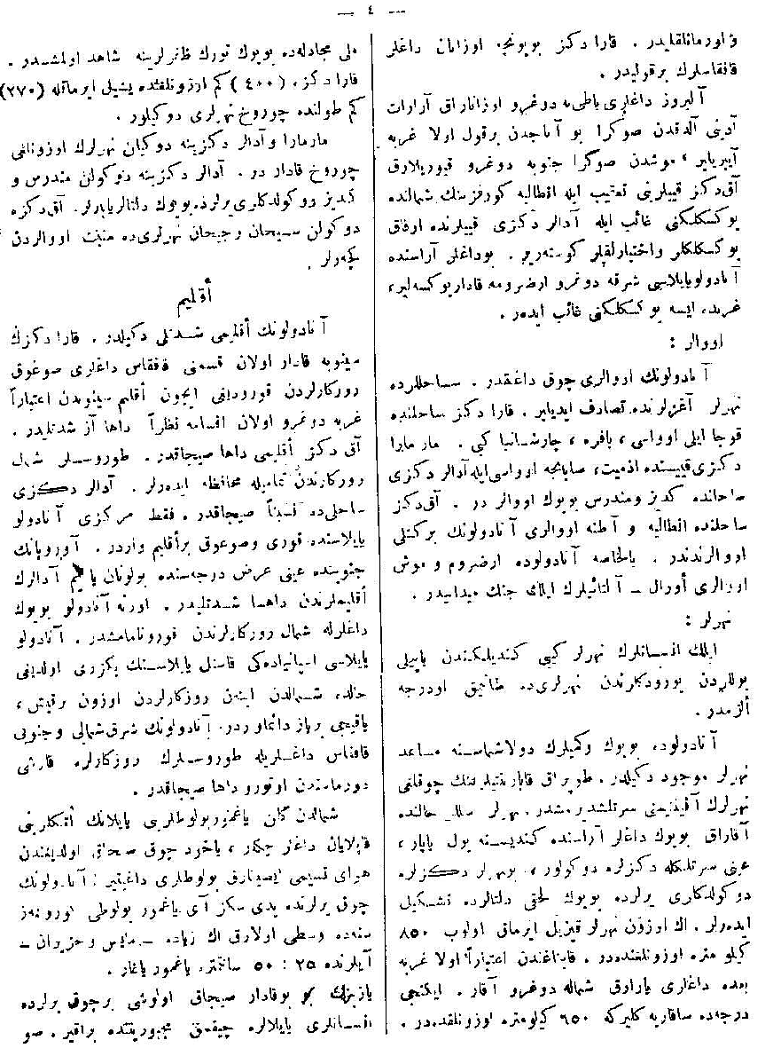 — ٤ —
و اورمانلقلیدر . قارا دكز بویونجه اوزانان داغلر
قافقاسلرك برقولیدر .
آلبروز داغلری باطی‌یه دوغرو اوزاناراق آرارات
آدینی آلدقدن صوكرا بو آناجدن برقول اولا غربه
آیریلیر ، موشدن صوكرا جنوبه دوغرو قیوریلارق
آق‌دكز قییلرینی تعقیب ایله انطالیه كورفزینك شمالنده
یوكسكلكنی غائب ایله آدالر دكزی قییلرنده اوفاق
یوكسكلكلر واختیارلقلر كوسته‌ریر . بوداغلر آراسنده
آنادولویایلاسی شرقه دوغرو ارضرومه قاداریوكسه‌لیر،
غربده ایسه یوكسكلكنی غائب ایده‌ر .
اووالر :
آنادولونك اووالری چوق داغنقدر . ساحللرده
نهرلر آغزلرنده تصادف ایدیلیر . قارا دكز ساحلنده
قوجا ایلی اوواسی ، بافره ، چارشانبا كبی . مارمارا
دكزی قییسنده ازمیت، صاپانجه اوواسی‌ایله آدالر دكزی
ساحلنده كدیز ومندرس بویوك اووالر در . آق‌دكز
ساحلنده انطالیه و آطنه اووالری آنادولونك بركتلی
اووالرندندر . بالخاصه آنادولوده ارضروم و موش
اووالری أورال — آلتائیلرك ایلك جنك میدانیدر .
نهرلر :
ایلك انسانلرك نهرلر كیبی كندیلكندن یاپیلی
یوللردن یورودكلرندن نهرلری‌ده طانیمق اودرجه
ألزمدر .
آنادولوده بویوك وكمیلرك دولاشماسنه مساعد
نهرلر موجود دكیلدر . طوپراق قابارنتیلرینك چوقلغی
نهرلرك آقیندیسنی سرتلشدیرمشدر . نهرلر سللر حالنده
آقاراق بویوك داغلر آراسنده كندیسنه یول یاپار ،
عینی سرتلكله دكزلره دوكولور ، بونهرلر دكزلره
دوكولدكلری یرلرده بویوك لحقی دلتالرده تشكیل
ایده‌رلر . اك اوزون نهرلر قیزیل ایرماق اولوب ٨٥٠
كیلو متره اوزونلغنده‌در . قایناغندن اعتباراً اولا غربه
بعده داغلری یارارق شماله دوغرو آقار . ایكنجی
درجه‌ده ساقاریه كلیركه ٦٥٠ كیلومتره اوزونلقده‌در .
ملی مجادله‌ده بویوك تورك ظفرلرینه شاهد اولمشدر .
قارا دكزه (٤٠٠) كم اوزونلغنده یشیل ایرماقله (٢٧٠)
كم طولنده چوروخ نهرلری دوكیلور .
مارمارا وآدالر دكزینه دوكیلن نهرلرك اوزونلغی
چوروخ قادار در . آدالر دكزینه دوكولن مندرس و
كدیز دوكولدكلری یرلرده بویوك دلتالریاپارلر. آق‌دكزه
دوكولن سیحان وجیحان نهرلری‌ده منبت اووالردن
كچه‌رلر .
أقلیم
آنادولونك أقلیمی شدتلی دكیلدر . قارا دكزك
سینوبه قادار اولان قسمنی قافقاس داغلری صوغوق
روزكارلردن قورودیغی ایچون أقلیم سینوبدن اعتباراً
غربه دوغرو اولان اقسامه نظراً داها آز شدتلیدر .
آق دكز أقلیمی داها صیجاقدر . طوروسلر شمال
روزكارندن تمامیله محافظه ایده‌رلر . آدالر دكزی
ساحلی‌ده نسبتاً صیجاقدر . فقط مركزی آنادولو
یایلاسنده قوری وصوغوق برأقلیم واردر . آوروپانك
جنوبنده عینی عرض درجه‌سنده بولونان یاریم آدالرك
أقلیملرندن داها شدتلیدر . اورته آنادولو بویوك
داغلرله شمال روزكارلرندن قورونامامشدر . آنادولو
یایلاسی اسپانیاده‌كی قاستیل یایلاسنك بكزری اولدیغی
حالده شمالدن اینن روزكارلردن اوزون برقیش ،
یاقیجی بریاز دائماواردر. آنادولونك شرق‌شمالی وجنوبی
قافقاس داغلریله طوروسلرك روزكارلره قارشی
دورماسندن اوتورو داها صیجاقدر .
شمالدن كلن یاغموربولوطلری یایلانك أتكلرینی
قاپلایان داغلر چكر ، یاخود چوق صیجاق اولدیغندن
هوای نسیمی ایصینارق بولوطلری داغیتیر : آنادولونك
چوق یرلرنده یدی سكز آی یاغمور بولوطی كورونمز
سنه‌ده وسطی اولارق اك زیاده — مایس وحزیران —
آیلرنده ٢٥ : ٥٠ سانتمتره یاغمور یاغار .
یازینك بوقادار صیجاق اولوشی برچوق یرلرده
انسانلری یایلالره چیقمق مجبوریتنده براقیر . صو